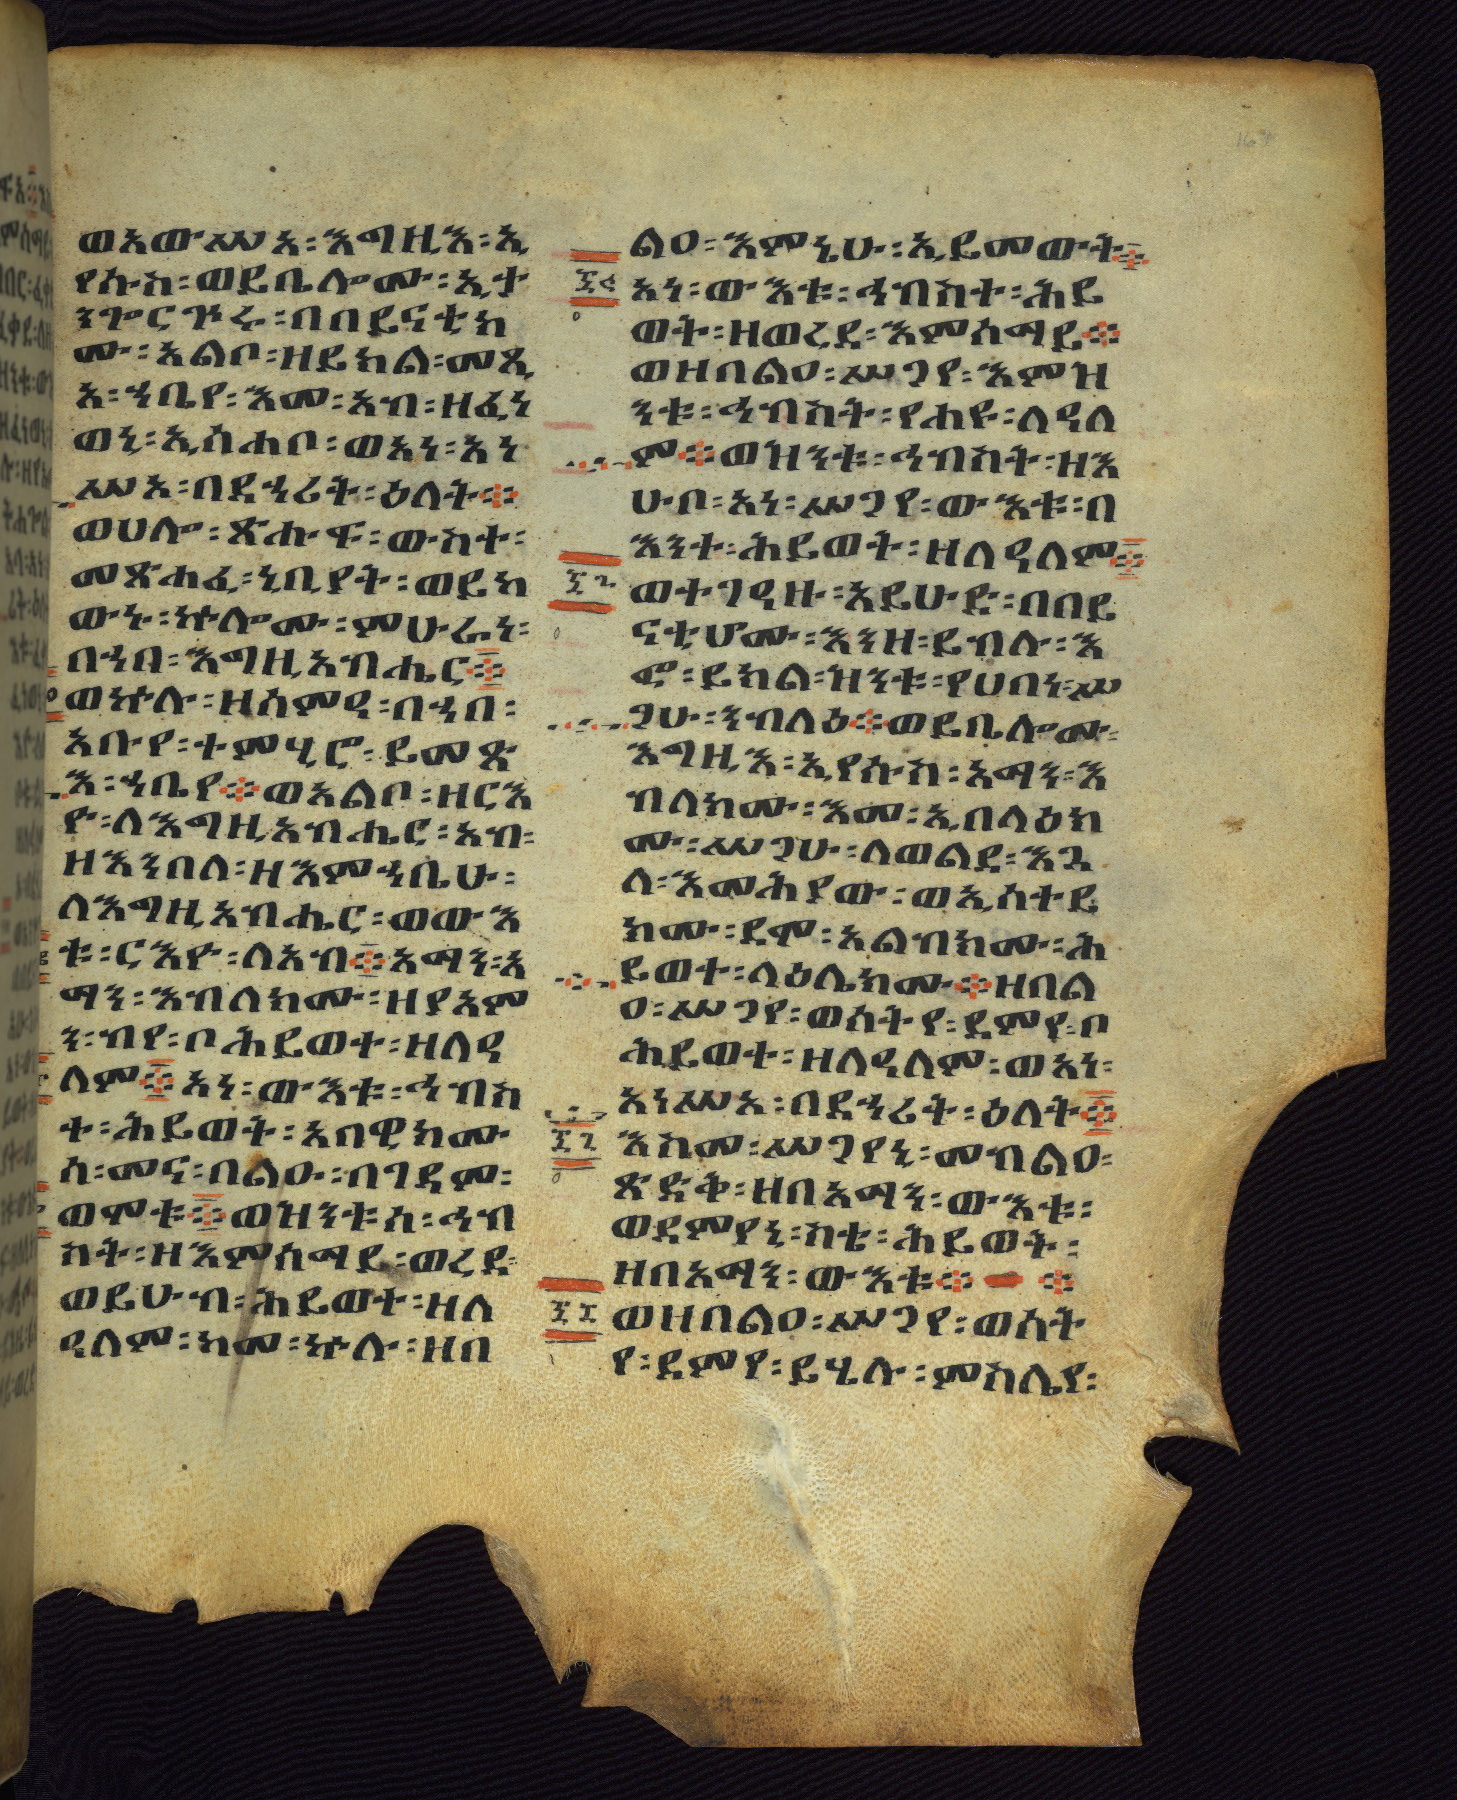 ወአውሥአ፡እግዚእ፡ኢ
የሱስ፡ወይቤሎሙ፡ኢት
ንጐርጕሩ፡በበይናቲክ
ሙ፡አልቦ፡ዘይክል፡መጺ
አ፡ኀቤየ፡እመ፡አብ፡ዘፈነ
ወኒ፡ኢስሐቦ፡ወአነ፡አነ
ሥአ፡በደኃሪት፡ዕለት፨
ወሀሎ፡ጽሑፍ፡ውስተ፡
መጽሐፈ፡ነቢያት፡ወይከ
ውኑ፡ኵሎሙ፡ምሁራነ፡
በኀበ፡እግዚአብሔር፨
ወኵሉ፡ዘሰምዓ፡በኀበ፡
አቡየ፡ተምሂሮ፡ይመጽ
እ፡ኀቤየ፨ወአልቦ፡ዘርእ
ዮ፡ለእግዚአብሔር፡አብ፡
ዘእንበለ፡ዘእምኀቤሁ፡
ለእግዚአብሔር፡ወውእ
ቱ፡ርእዮ፡ለአብ፨አማን፡አ
ማን፡እብለክሙ፡ዘያአም
ን፡ብየ፡ቦ፡ሕይወተ፡ዘለዓ
ለም፨አነ፡ውእቱ፡ኅብስ
ተ፡ሕይወት፡አበዊክሙ
ሰ፡መና፡በልዑ፡በገዳም፡
ወሞቱ፨ወዝንቱሰ፡ኅብ
ስት፡ዘእምሰማይ፡ወረደ፡
ወይሁብ፡ሕይወተ፡ዘለ
ዓለም፡ከመ፡ኵሉ፡ዘበ
ልዐ፡እምኔሁ፡ኢይመውት፨
፶፩ አነ፡ውእቱ፡ኅብስተ፡ሕይ
ወት፡ዘወረደ፡እምሰማይ፨
ወዘበልዐ፡ሥጋየ፡እምዝ
ንቱ፡ኅብስት፡የሐዩ፡ለዓለ
ም፨ወዝንቱ፡ኅብስት፡ዘእ
ሁቦ፡አነ፡ሥጋየ፡ውእቱ፡በ
እንተ፡ሕይወት፡ዘለዓለም፨
ወተጋዓዙ፡አይሁድ፡በበይ
ናቲሆሙ፡እንዘ፡ይብሉ፡እ
ፎ፡ይክል፡ዝንቱ፡የሀበነ፡ሥ
ጋሁ፡ንብላዕ፨ወይቤሎሙ፡
እግዚእ፡ኢየሱስ፡አማን፡እ
ብለክሙ፡እመ፡ኢበላዕክ
ሙ፡ሥጋሁ፡ለወልደ፡እጓ
ለ፡እመሕያው፡ወኢሰተይ
ክሙ፡ደሞ፡አልብክሙ፡ሕ
ይወተ፡ላዕሌክሙ፨ዘበል
ዐ፡ሥጋየ፡ወሰትየ፡ደምየ፡ቦ
ሕይወተ፡ዘለዓለም፡ወአነ፡
አነሥአ፡በደኃሪት፡ዕለት፨
እስመ፡ሥጋየኒ፡መብልዐ፡
ጽድቅ፡ዘበአማን፡ውእቱ፡
ወደምየኒ፡ስቴ፡ሕይወት፡
ዘበአማን፡ውእቱ፨ ፨
ወዘበልዐ፡ሥጋየ፡ወሰት
የ፡ደምየ፡ይሄሉ፡ምስሌየ፡